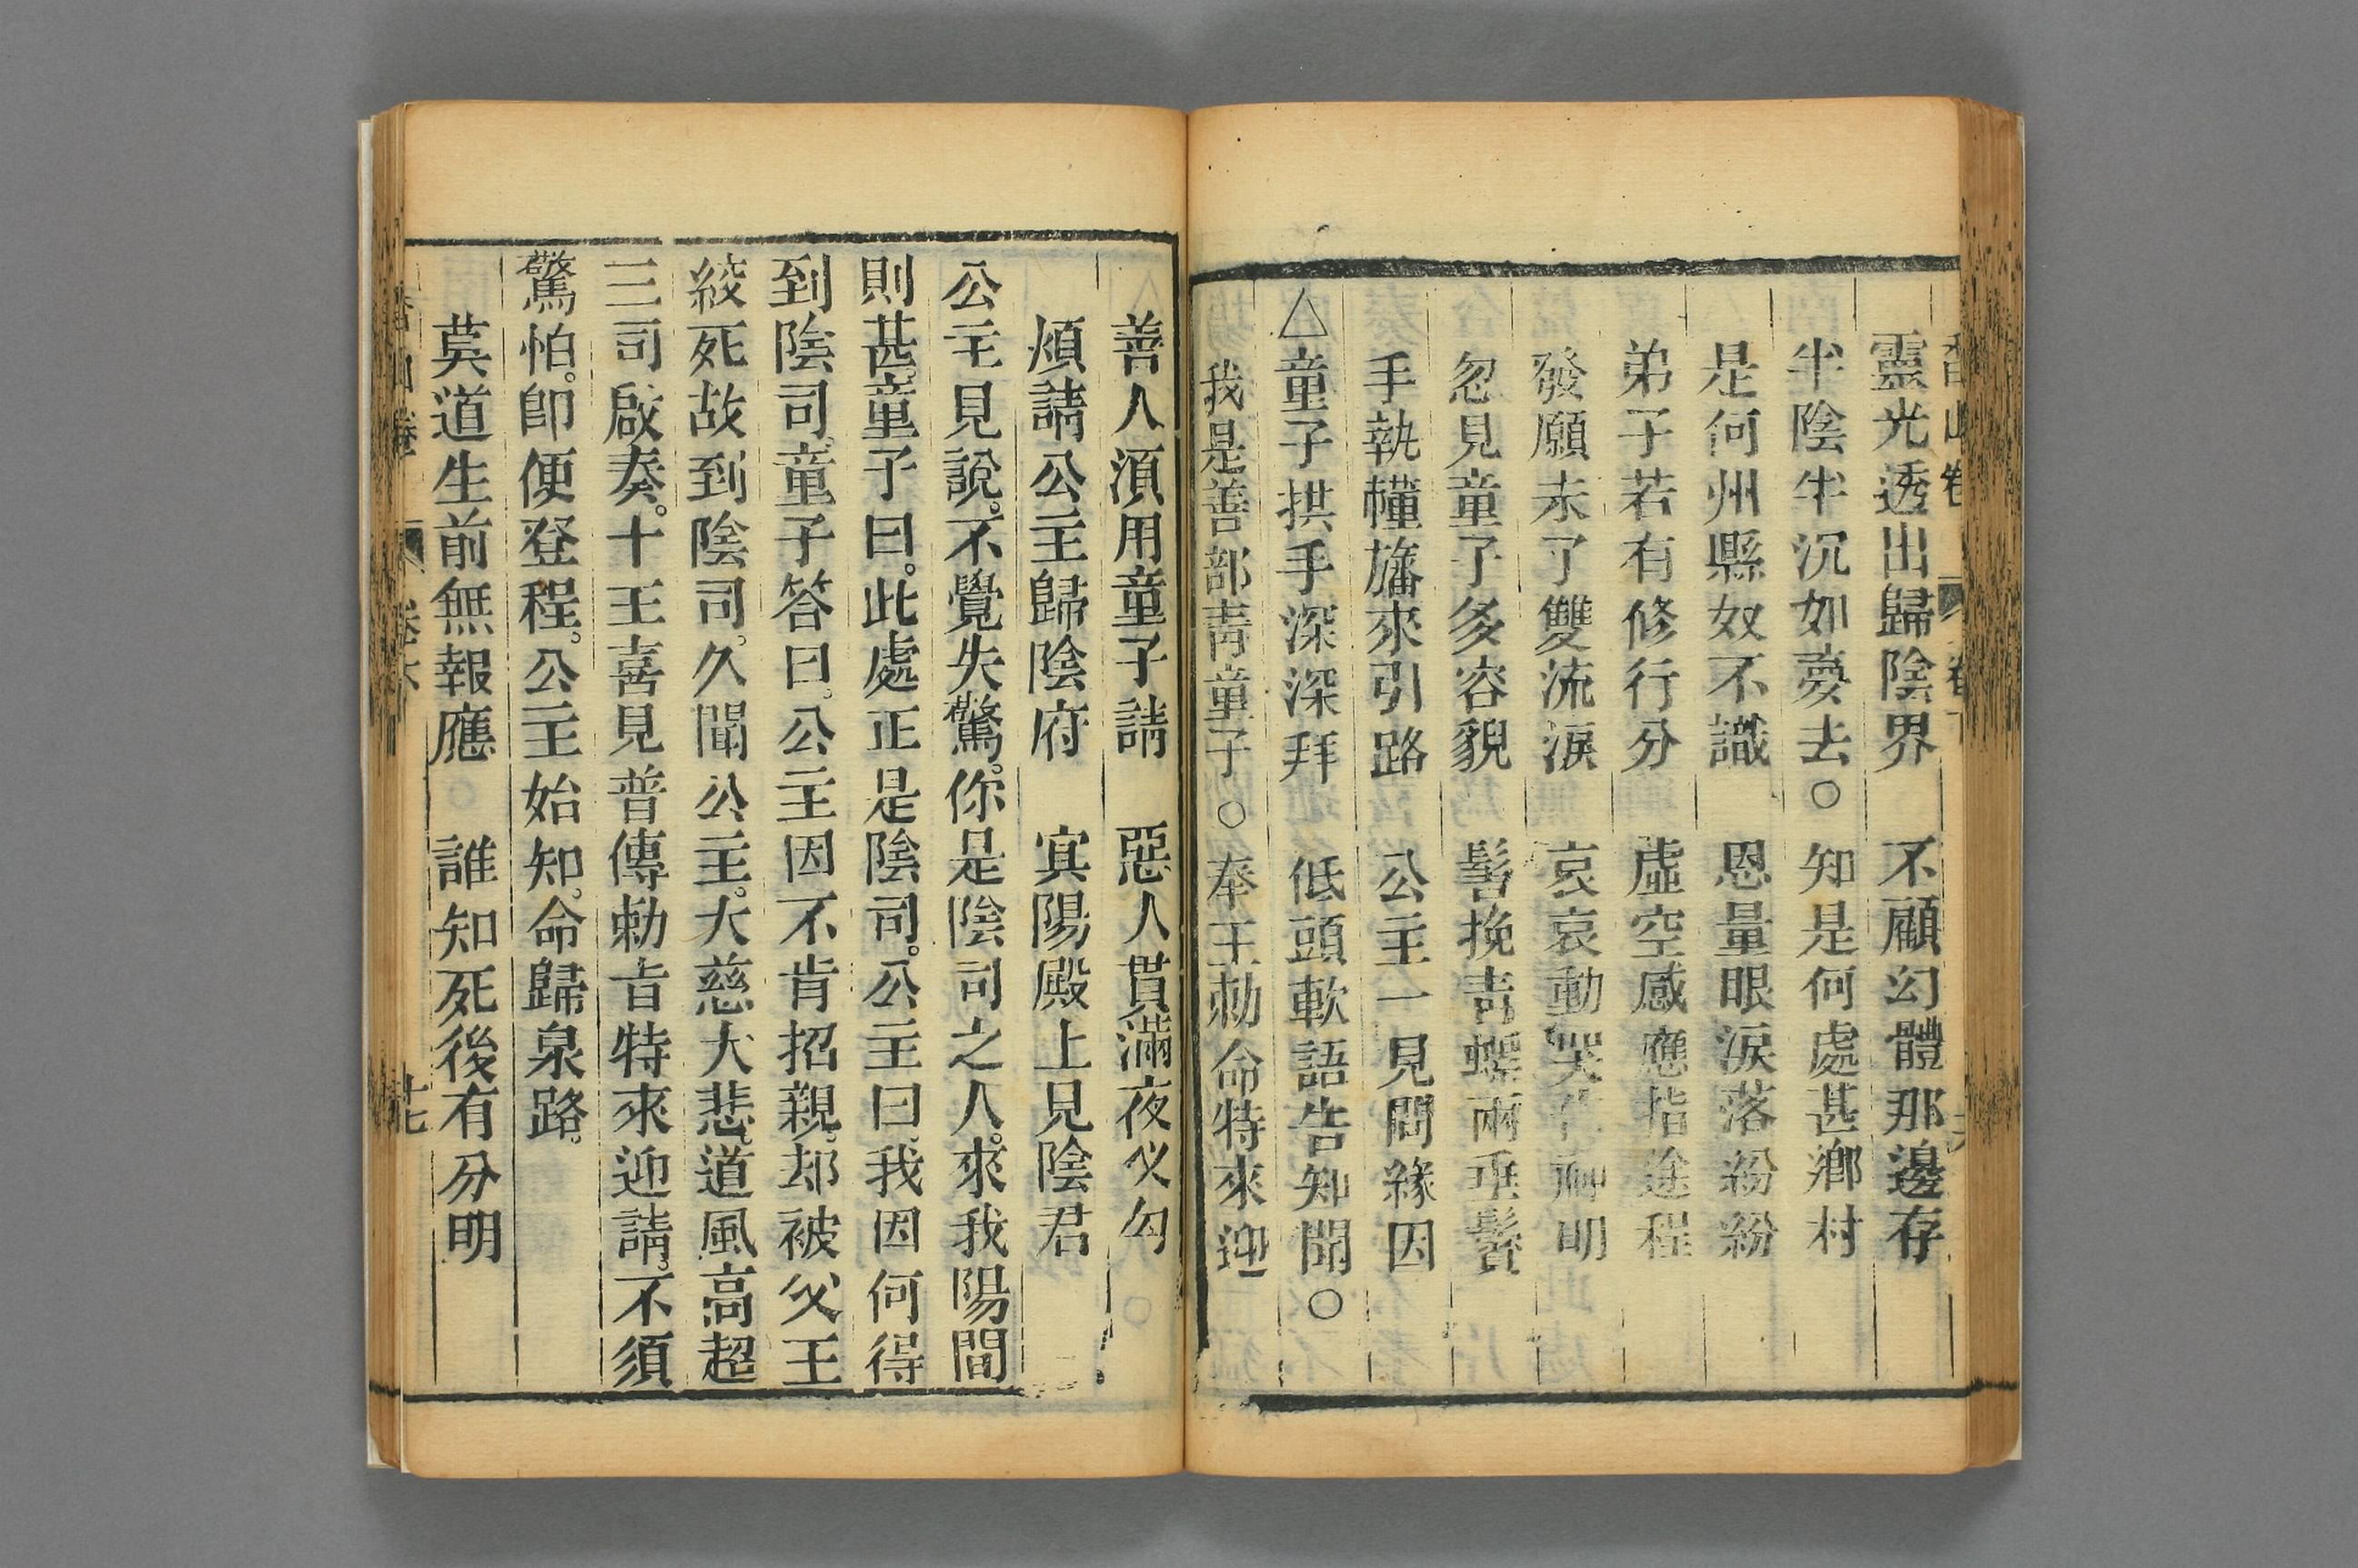 靈光透出歸陰界　不顧幻體那邊存
半陰半沉如夢去○知是何處甚鄉村
是何州縣奴不識　恩量眼淚落紛紛
弟子若有修行分　虛空感應指途程
發願未了雙流淚　哀哀動哭 明
忽見童子多容貌　髻挽青螺兩垂鬟
手執幢旛來引路　公主一見問緣因
△童子拱手深深拜　低頭軟語告知聞○
我是善部青童子○奉王勅命特來迎
善人須用童子請　惡人貫滿夜叉勾
煩請公主歸陰府　㝠陽殿上見陰君
公主見說。不覺失驚。你是陰司之人。來我陽間
則甚。童子曰。此處正是陰司。公主曰。我因何得
到陰司。童子答曰。公主因不肯招親。却被父王
絞死故到陰司。久聞公主。大慈大悲。道風高超
三司啟奏。十王喜見普傳勅旨特來迎請。不須
驚怕。即便登程。公主始知。命歸泉路。
莫道生前無報應　誰知死後有分明